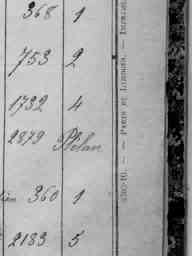 368 1
753 2
1732 4
2879 Phlan
360 1
2183 5
— PARIS ET LIMOGES. — IMPRIM